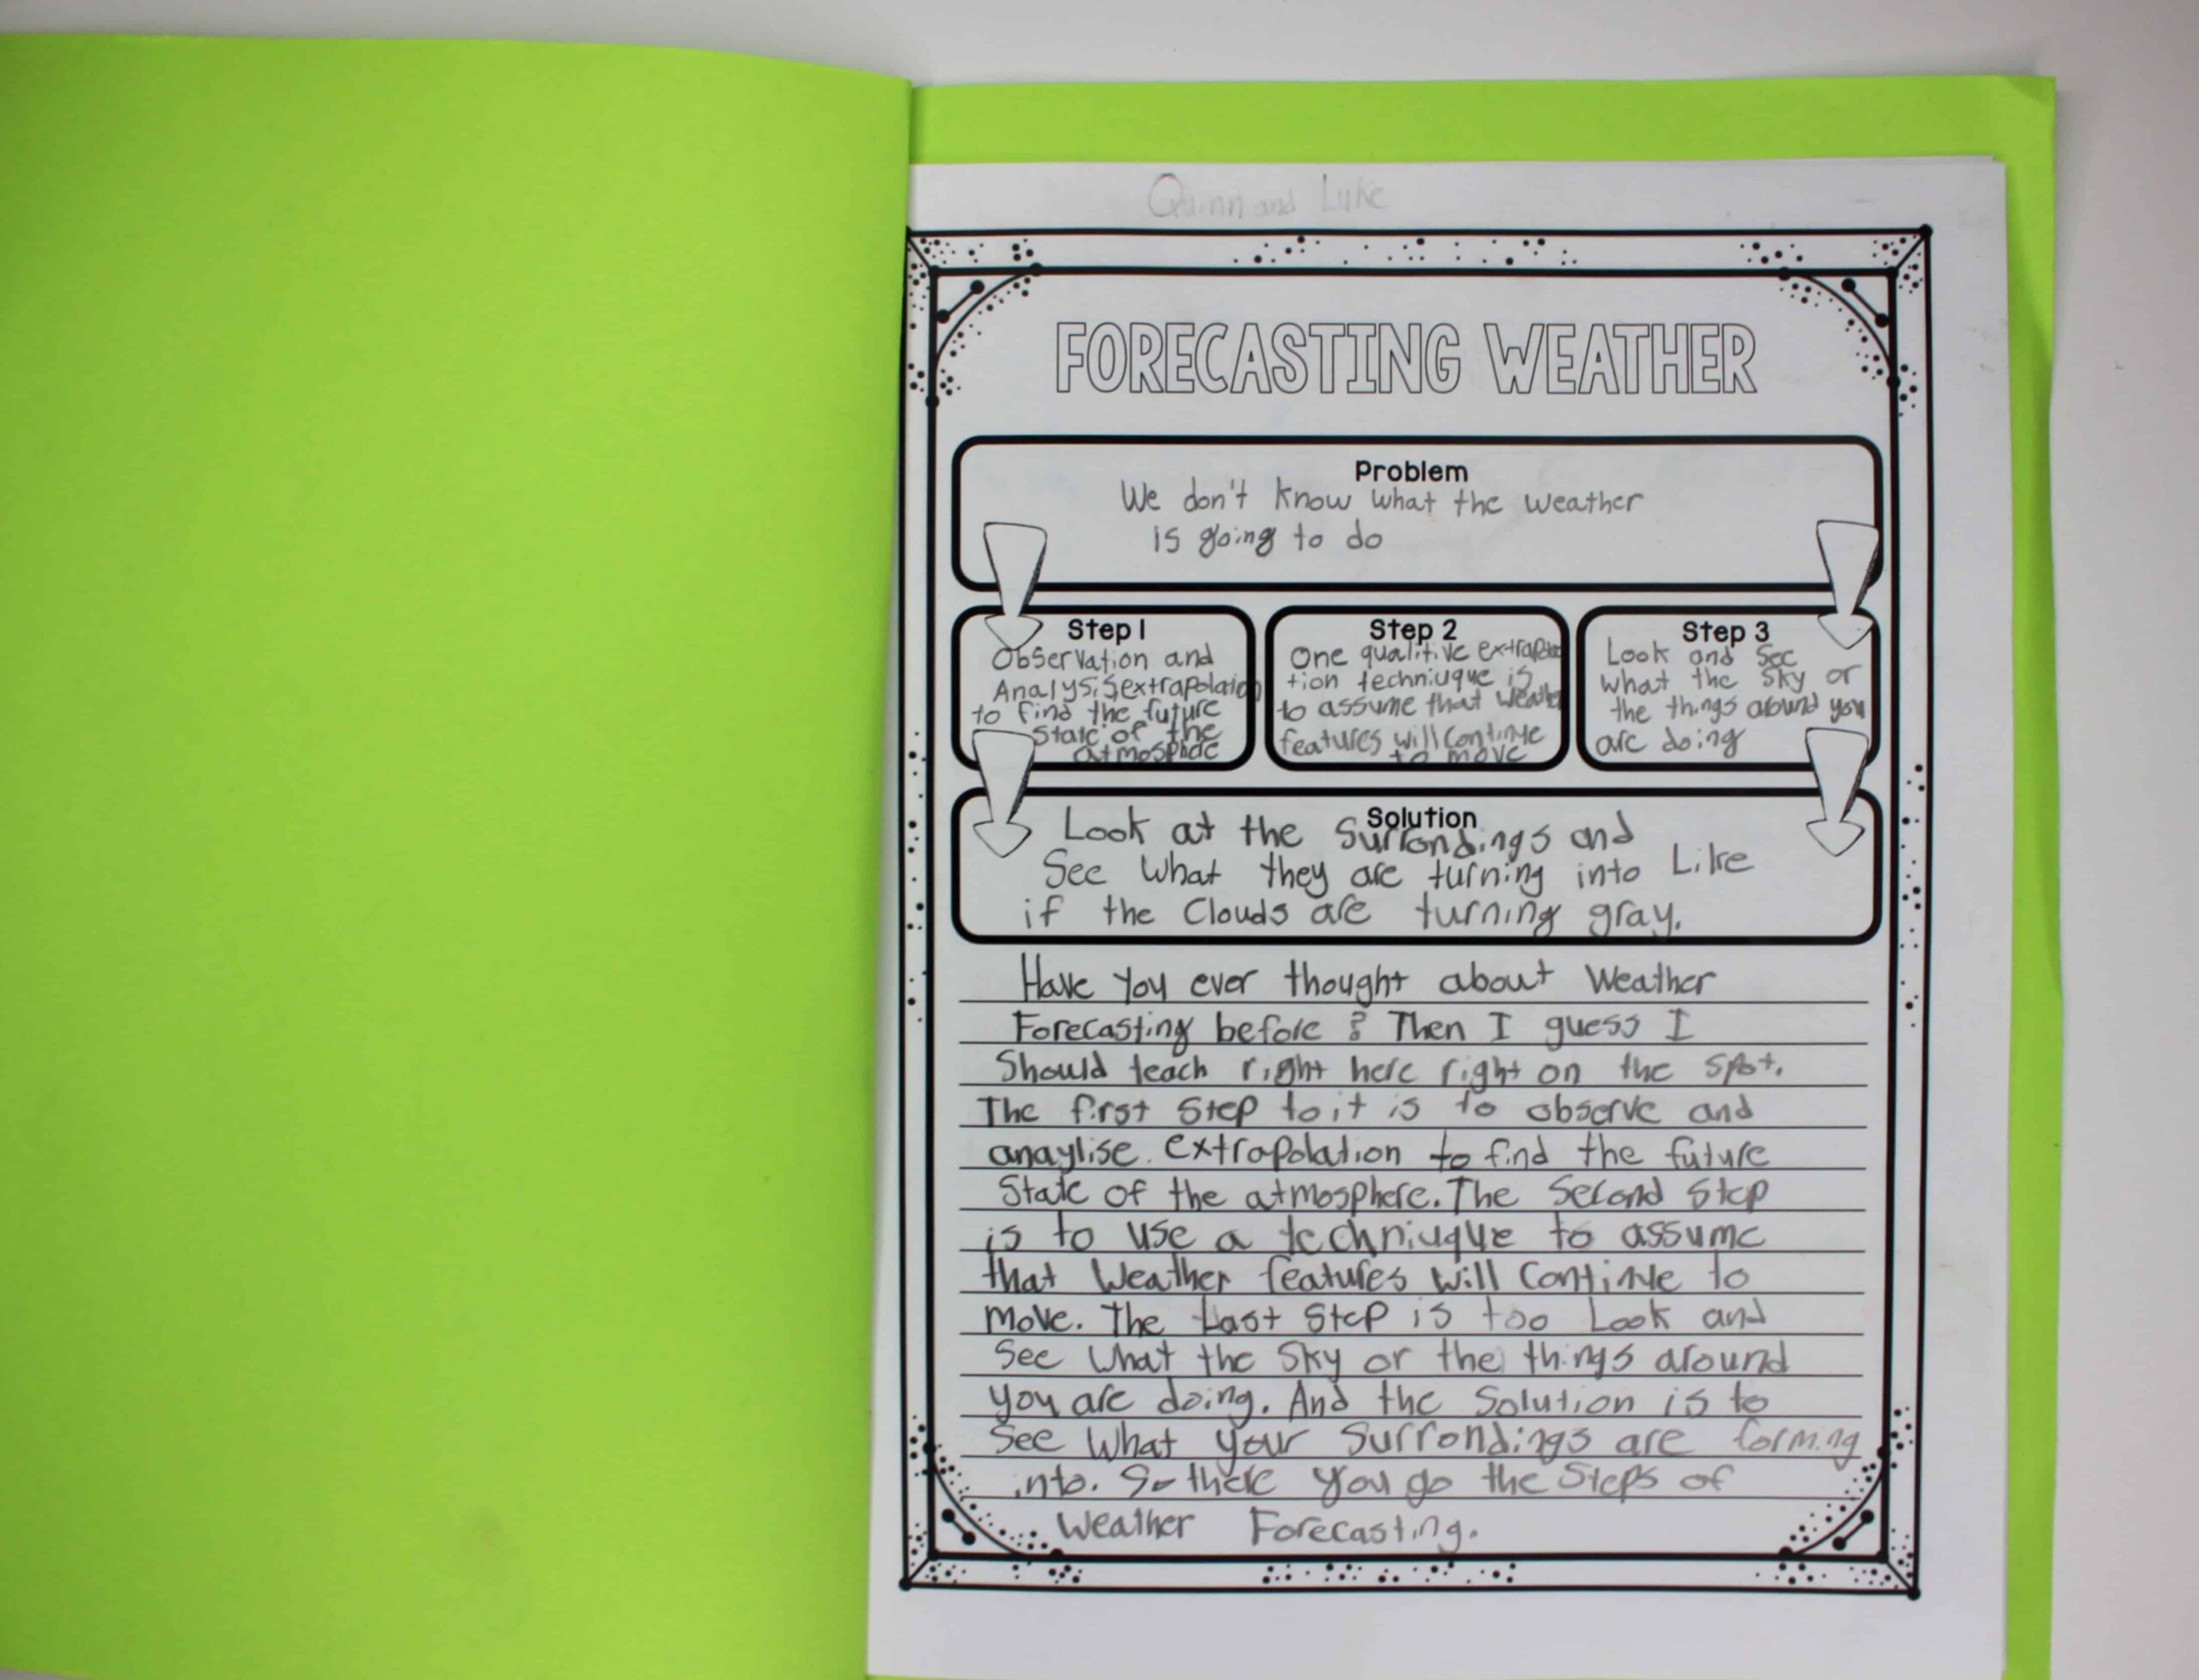 Quinn and Luke
FORECASTING WEATHER
Problem
We don't know what the weather
is going to do
Step 1
Observation and
Analysis extrapolation
to find the future
state of the
atmosphere
Step 2
One qualitive extrapola
tion techniuque is
to assume that weather
features will continue
to move
Step 3
Look and see
what the sky or
the things around you
are doing
Solution
Look at the Surrondings and
See What they are turning into Like
if the Clouds are turning gray.
Have you ever thought about Weather
Forecasting before? Then I guess I
Should teach right here right on the spot.
The first step to it is to observe and
anaylise. extrapolation to find the future
State of the atmosphere. The Second Step
is to use a techniuque to assume
that Weather features will Continue to
move. The Last Step is too Look and
See What the Sky or the things around
you are doing. And the Solution is to
See What your Surrondings are forming
into. So there you go the Steps of
Weather Forecasting.